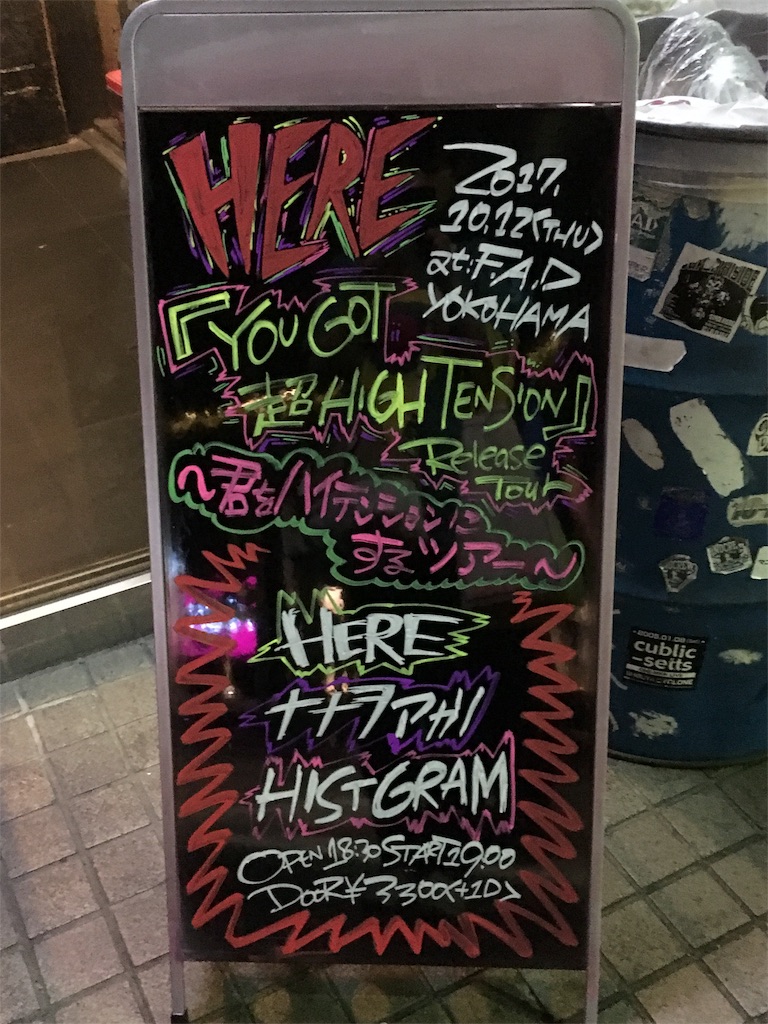 HERE
2017.
10.12(THU)
at:F.A.D
YOKOHAMA
『YOU GOT
超HIGH TENSION』
Release
Tour
〜君をハイテンションに
するツアー〜
HERE
HISTGRAM
OPEN 18:30 START 19:00
DOOR ¥3300(+1D)
2008.01.08
cublic
-setts